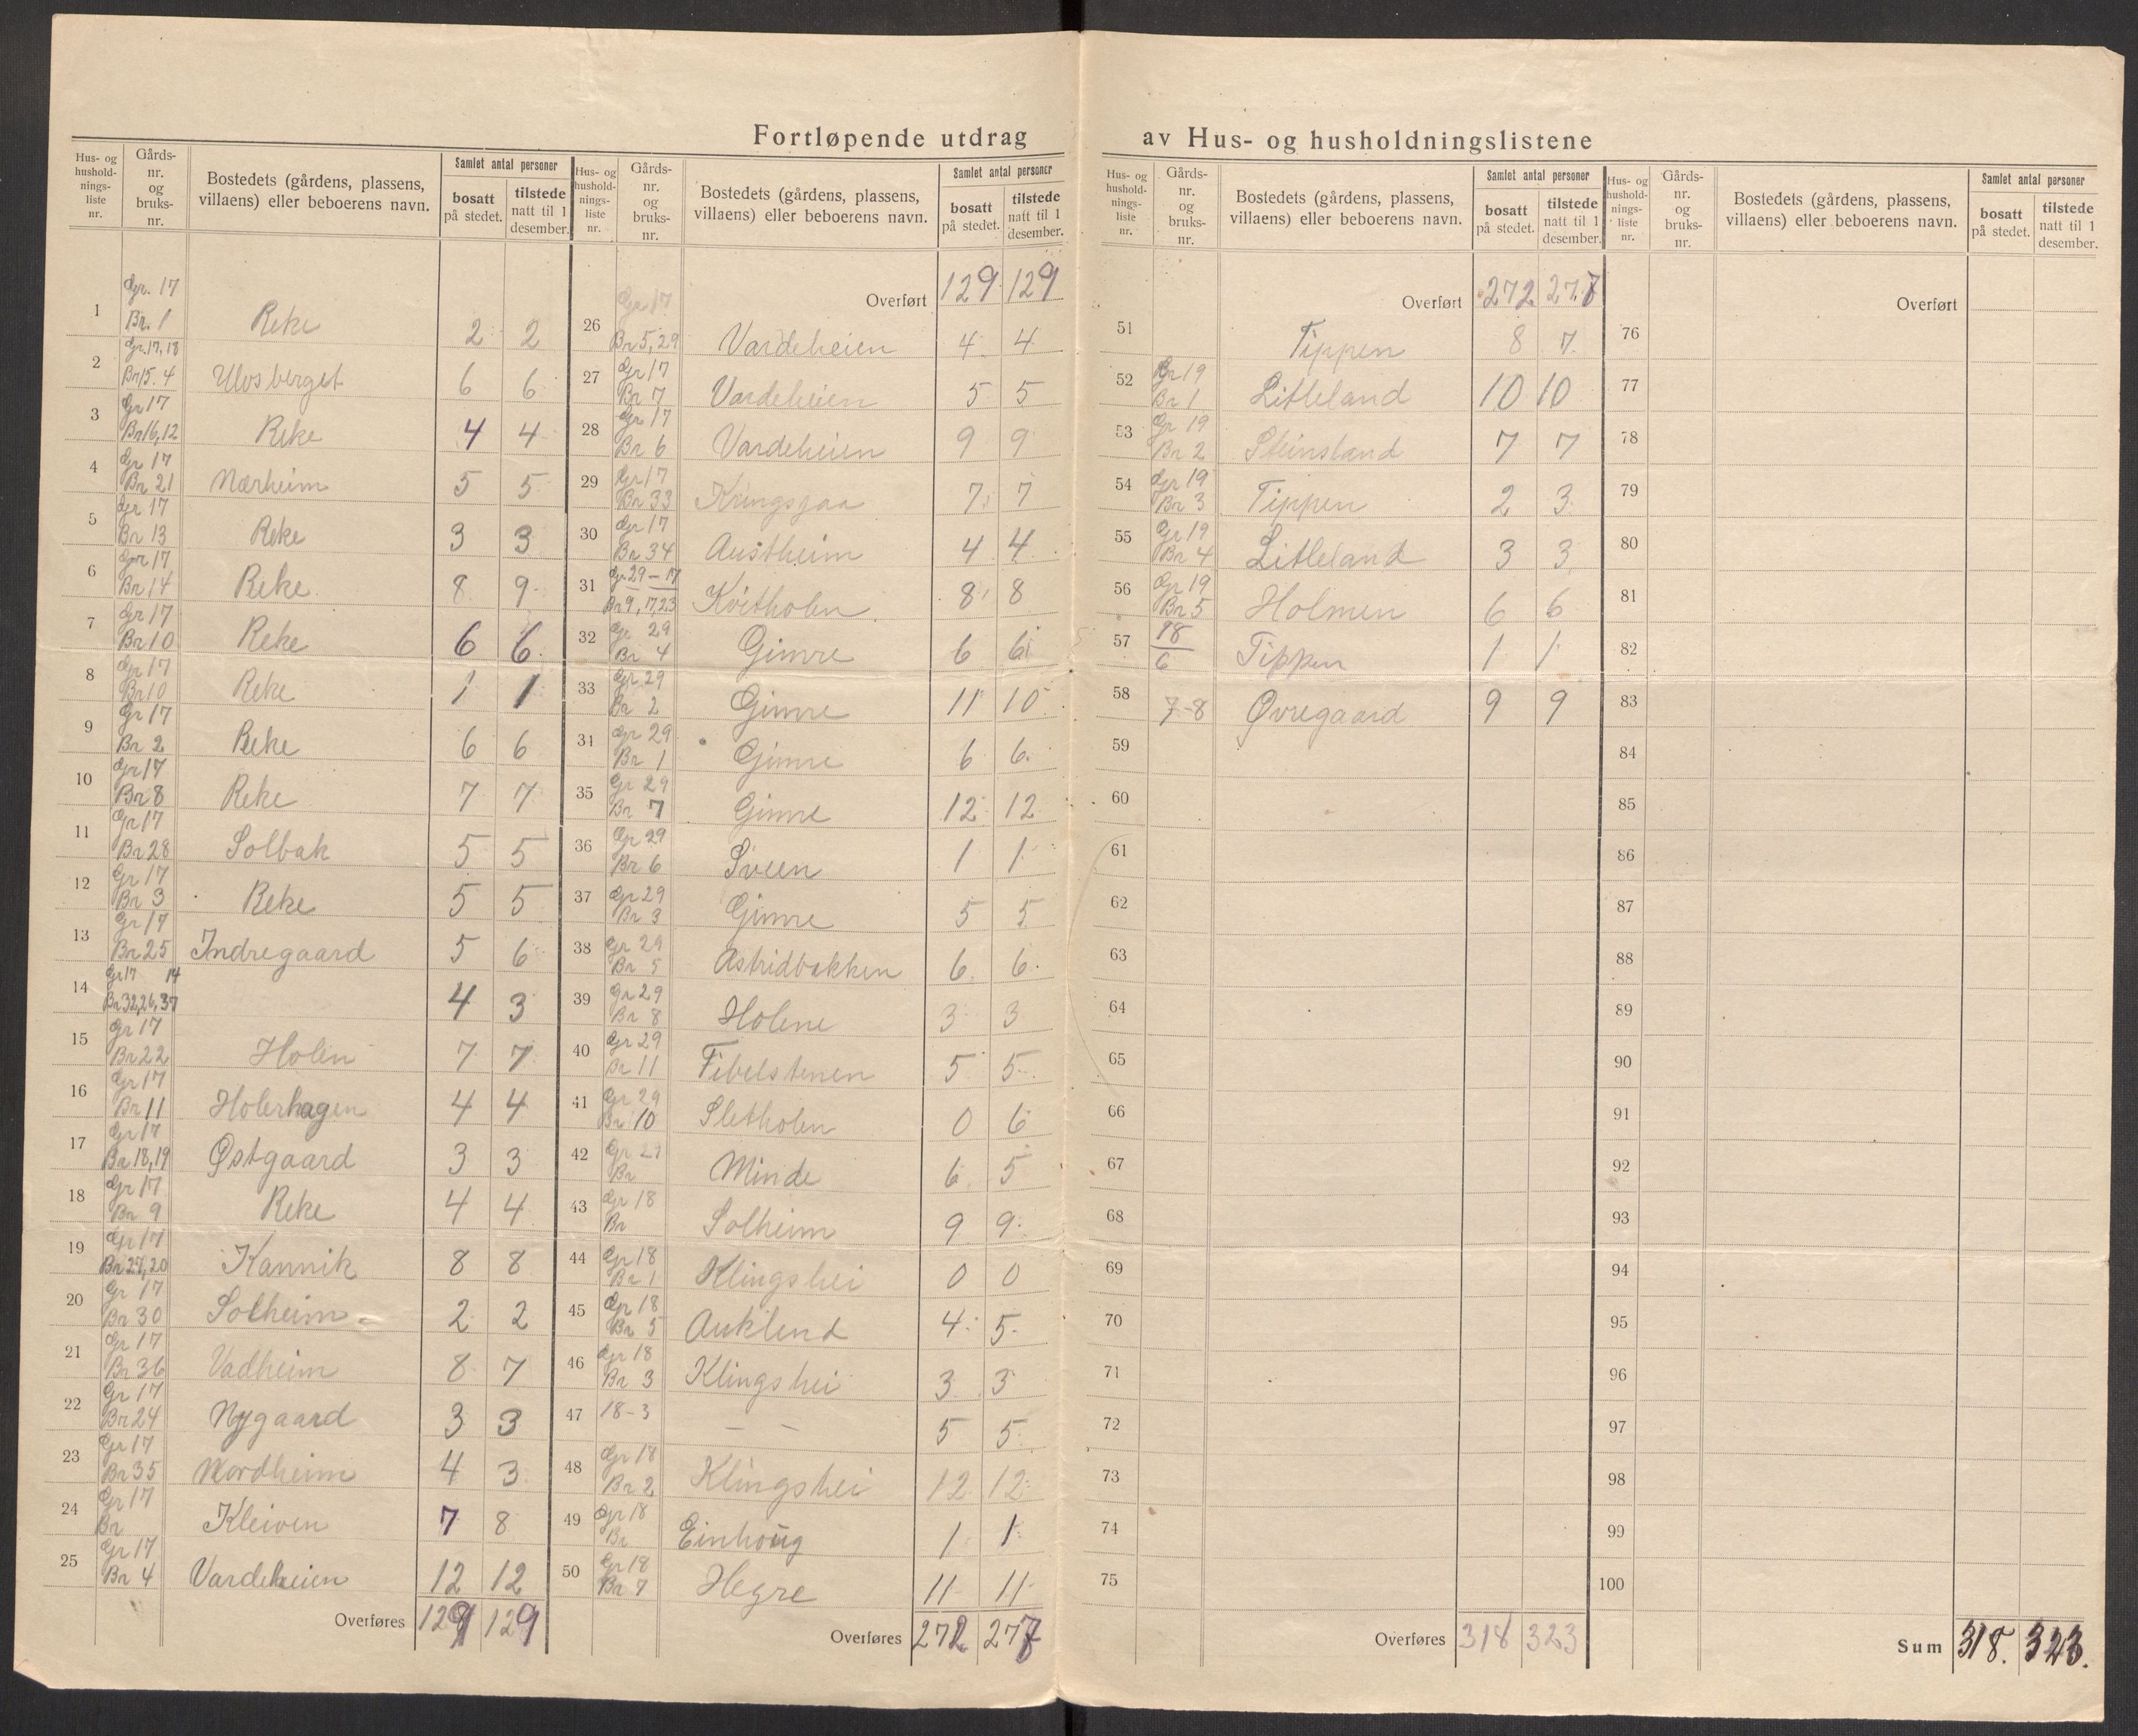 Fortløpende utdrag av Hus- og husholdningslistene
Hus- og hushold-nings-liste nr. | Gårds-nr. og bruks-nr. | Bostedets (gårdens, plassens, villaens) eller beboerens navn. | Samlet antal personer bosatt på stedet. | tilstede natt til 1 desember.
1 Gr. 17 Br. 1 Reke 2 2
2 Gr. 17, 18 Br 15. 4 Ulvsberget 6 6
3 Gr 17 Br 16, 12 Reke 4 4
4 Gr 17 Br 21 Nærheim 5 5
5 Gr 17 Br 13 Reke 3 3
6 Gr 17 Br 14 Reke 8 9
7 Gr 17 Br 10 Reke 6 6
8 Gr 17 Br 10 Reke 1 1
9 Gr 17 Br 2 Reke 6 6
10 Gr 17 Br 8 Reke 7 7
11 Gr 17 Br 28 Solbak 5 5
12 Gr 17 Br 3 Reke 5 5
13 Gr 17 Br 25 Indregaard 5 6
14 Gr 17 14 Br 32,26,37 4 3
15 Gr 17 Br 22 Holen 7 7
16 Gr 17 Br 11 Holerhagen 4 4
17 Gr 17 Br 18,19 Østgaard 3 3
18 Gr 17 Br 9 Reke 4 4
19 Gr 17 Br 27,20 Kannik 8 8
20 Gr 17 Br 30 Solheim 2 2
21 Gr 17 Br 36 Vadheim 8 7
22 Gr 17 Br 24 Nygaard 3 3
23 Gr 17 Br 35 Nordheim 4 3
24 Gr 17 Br Kleiven 7 8
25 Gr 17 Br 4 Vardeheien 12 12
Overføres 129 129
Hus- og hushold-nings-liste nr. | Gårds-nr. og bruks-nr. | Bostedets (gårdens, plassens, villaens) eller beboerens navn. | Samlet antal personer bosatt på stedet. | tilstede natt til 1 desember.
Overført 129 129
26 Gr 17 Br 5,29 Vardeheien 4 4
27 Gr 17 Br 7 Vardeheien 5 5
28 Gr 17 Br 6 Vardeheien 9 9
29 Gr 17 Br 33 Kringsjaa 7 7
30 Gr 17 Br 34 Austheim 4 4
31 Gr 29 - 17 Br 9, 17,23 Kvitholen 8 8
32 Gr 29 Br 4 Gimre 6 6
33 Gr 29 Br 2 Gimre 11 10
31 Gr 29 Br 1 Gimre 6 6
35 Gr 29 Br 7 Gimre 12 12
36 Gr 29 Br 6 Sveen 1 1
37 Gr 29 Br 3 Gimre 5 5
38 Gr 29 Br 5 Astridbakken 6 6
39 Gr 29 Br 8 Holene 3 3
40 Gr 29 Br 11 Fibelstenen 5 5
41 Gr 29 Br 10 Sletholen 0 6
42 Gr 29 Br Minde 6 5
43 Gr 18 Br Solheim 9 9
44 Gr 18 Br 1 Klingshei 0 0
45 Gr 18 Br 5 Auklend 4 5
46 Gr 18 Br 3 Klingshei 3 3
47 18-3 — — 5 5
48 Gr 18 Br 2 Klingshei 12 12
49 Gr 18 Br Einhoug 1 1
50 Gr 18 Br 7 Hegre 11 11
Overføres 272 277
Hus- og hushold-nings-liste nr. | Gårds-nr. og bruks-nr. | Bostedets (gårdens, plassens, villaens) eller beboerens navn. | Samlet antal personer bosatt på stedet. | tilstede natt til 1 desember.
Overført 272 277
51 Tippen 8 7
52 Gr 19 Br 1 Litleland 10 10
53 Gr 19 Br 2 Steinsland 7 7
54 Gr 19 Br 3 Tippen 2 3
55 Gr 19 Br 4 Litleland 3 3
56 Gr 19 Br 5 Holmen 6 6
57 18 6 Tippen 1 1
58 7-8 Øvregaard 9 9
59
60
61
62
63
64
65
66
67
68
69
70
71
72
73
74
75
Overføres 318 323
Hus- og hushold-nings-liste nr. | Gårds-nr. og bruks-nr. | Bostedets (gårdens, plassens, villaens) eller beboerens navn. | Samlet antal personer bosatt på stedet. | tilstede natt til 1 desember.
Overført
76
77
78
79
80
81
82
83
84
85
86
87
88
89
90
91
92
93
94
95
96
97
98
99
100
Sum 318. 323.